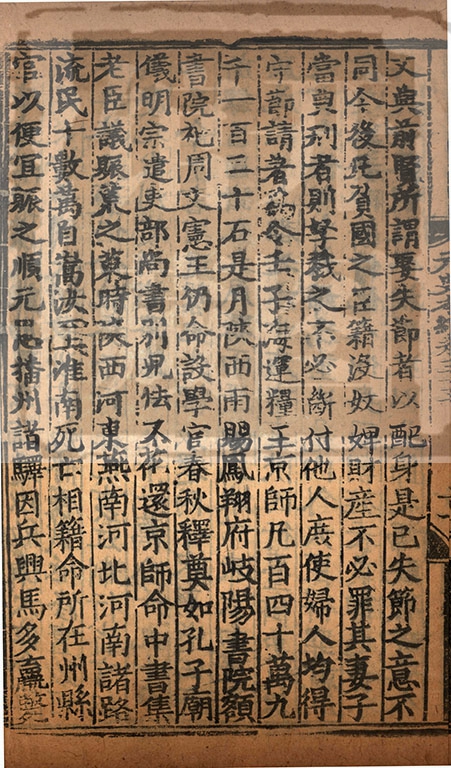 又與前賢所謂娶失節者以配身是已失節之意不
同今後凡負國之臣籍沒奴婢財產不必罪其妻子
當典刑者則孥戮之不必斷付他人庶使婦人均得
守節請著為令壬子海運糧至京師凡百四十萬九
千一百三十石是月陝西雨賜鳳翔府岐陽書院額
書院祀周文憲王仍命設學官春秋釋奠如孔子廟
儀明宗遣吏部尚書別兒怯不花還京師命中書集
老臣議賑荒之策時陝西河東燕南河北河南諸路
流民十數萬自嵩汝至淮南死亡相籍命所在州縣
官以便宜賑之順元思播州諸驛因兵興馬多羸斃